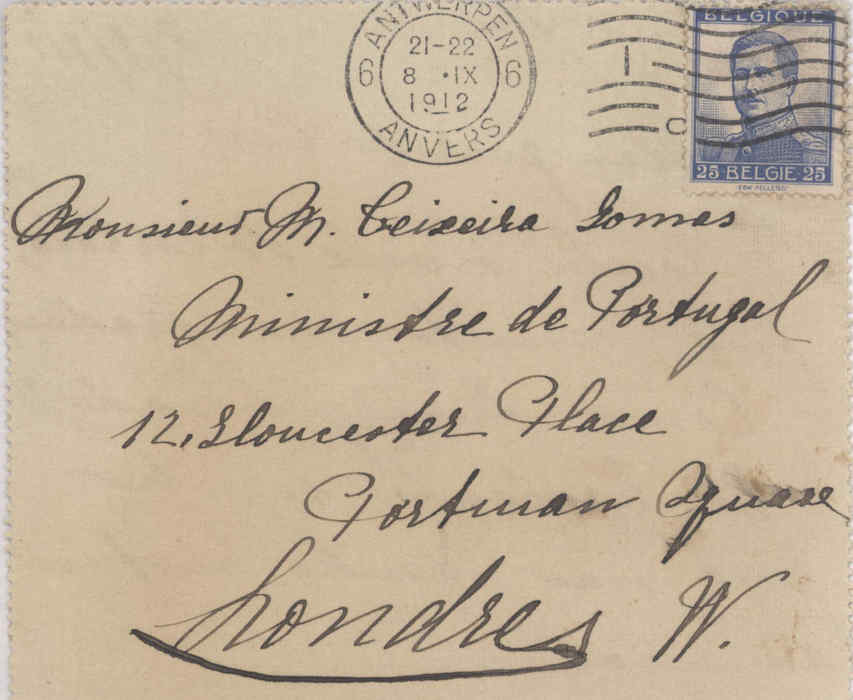 ANTWERPEN
21-22
6 8 ·IX 6
1912
ANVERS
BELGIQUE
25 BELGIE 25
Monsieur M. Teixeira Gomes
Ministre de Portugal
12, Gloucester Place
Portman Square
Londres W.